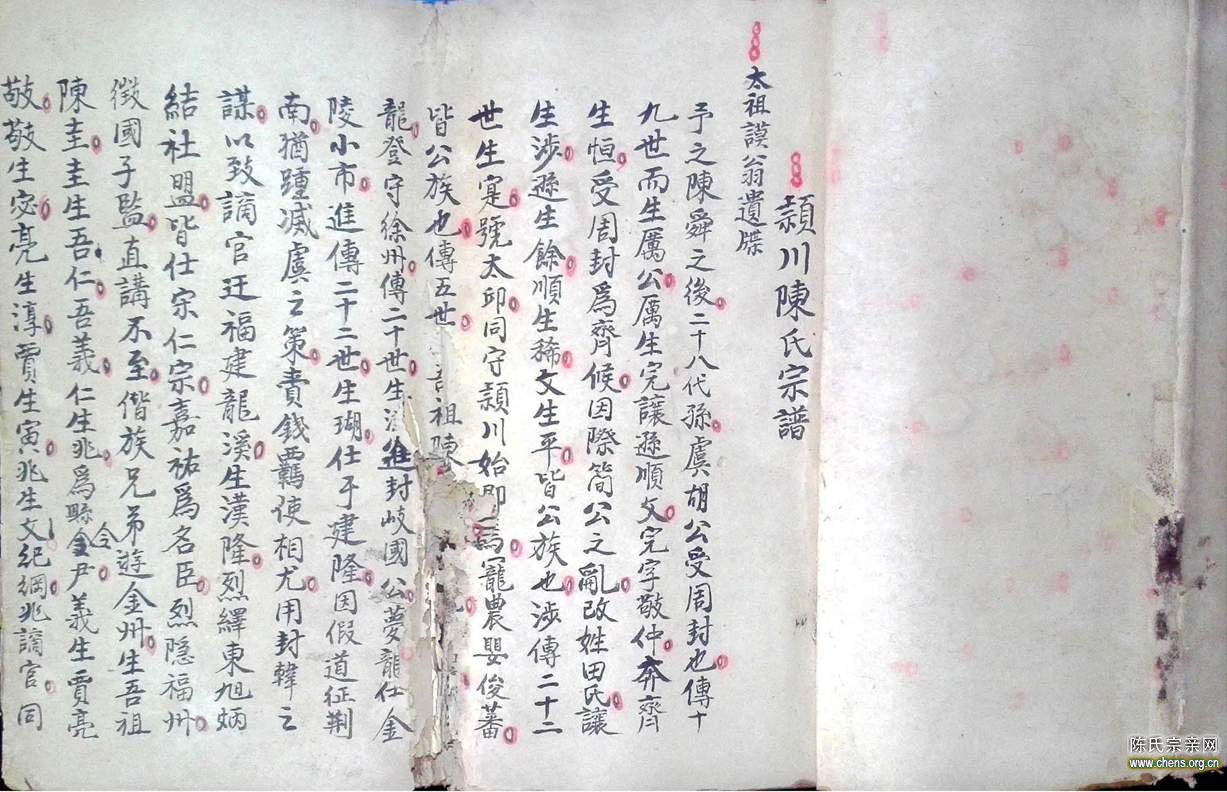 潁川陳氏宗譜
太祖謨翁遺牒
予之陳舜之後二十八代孫虞胡公受周封也傳十
九世而生厲公厲生完讓遜順文完字敬仲奔齊
生恒受周封爲齊候因際簡公之亂改姓田氏讓
生涉遜生餘順生稀文生平皆公族也涉傳二十二
世生寔號太邱同守潁川始即爲寵農嬰俊蕃
皆公族也傳五世吾祖陳
龍登守徐州傳二十世生進封岐國公夢龍仕金
陵小市進傳二十二世生瑚仕于建隆因假道征荆
南猶踵滅虞之策賣錢羈使相尤用封韓之
謀以致謫官迁福建龍溪生漢隆烈繹東旭炳
結社盟皆仕宋仁宗嘉祐爲名臣烈隐福州
徵國子監直講不至偕族兄弟遊金州生吾祖
陳圭圭生吾仁吾義仁生兆爲縣令尹義生賈亮
敬敬生宓亮生淳賈生寅兆生文紀綱兆謫官同
陈氏宗亲网
www.chens.org.cn